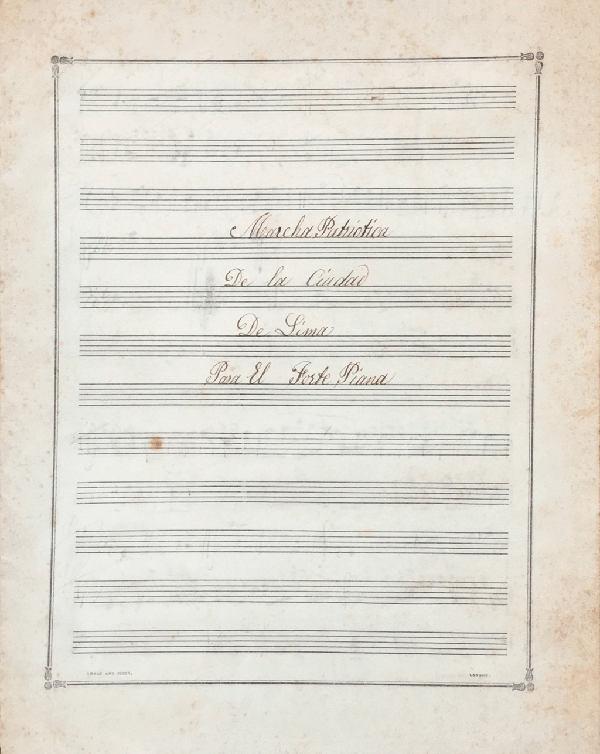 Marcha Patriotica
De la Ciudad
De Lima
Para El Forte Piana